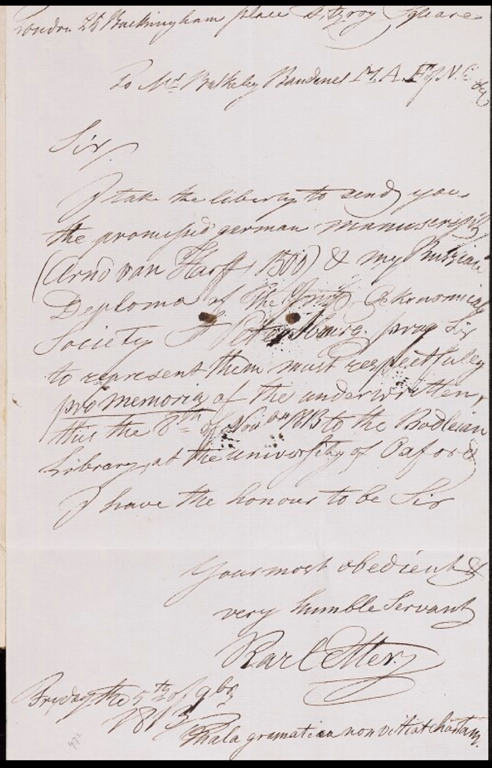 London 28 Buckingham place Fitzroy Square
To Mr Bulkeley Bandinel M.A. F. of N.C. &c
Sir,
I take the liberty to send you
the promised german manuscript
(Arnd van Harff 1500) & my Russian
Deploma of the Oekonomical
Society St Petersbourg. pray Sir
to represent them most respectfulley
pro memoria of the underwritten,
this the 8th of Novbr 1813 to the Bodleian
Library, at the university of Oxford
I have the honour to be Sir
Your most obedient &
very humble Servant
Karl Etter
Fryday the 5th of 9br
1813
Mala gramatica non vitiat chartam.